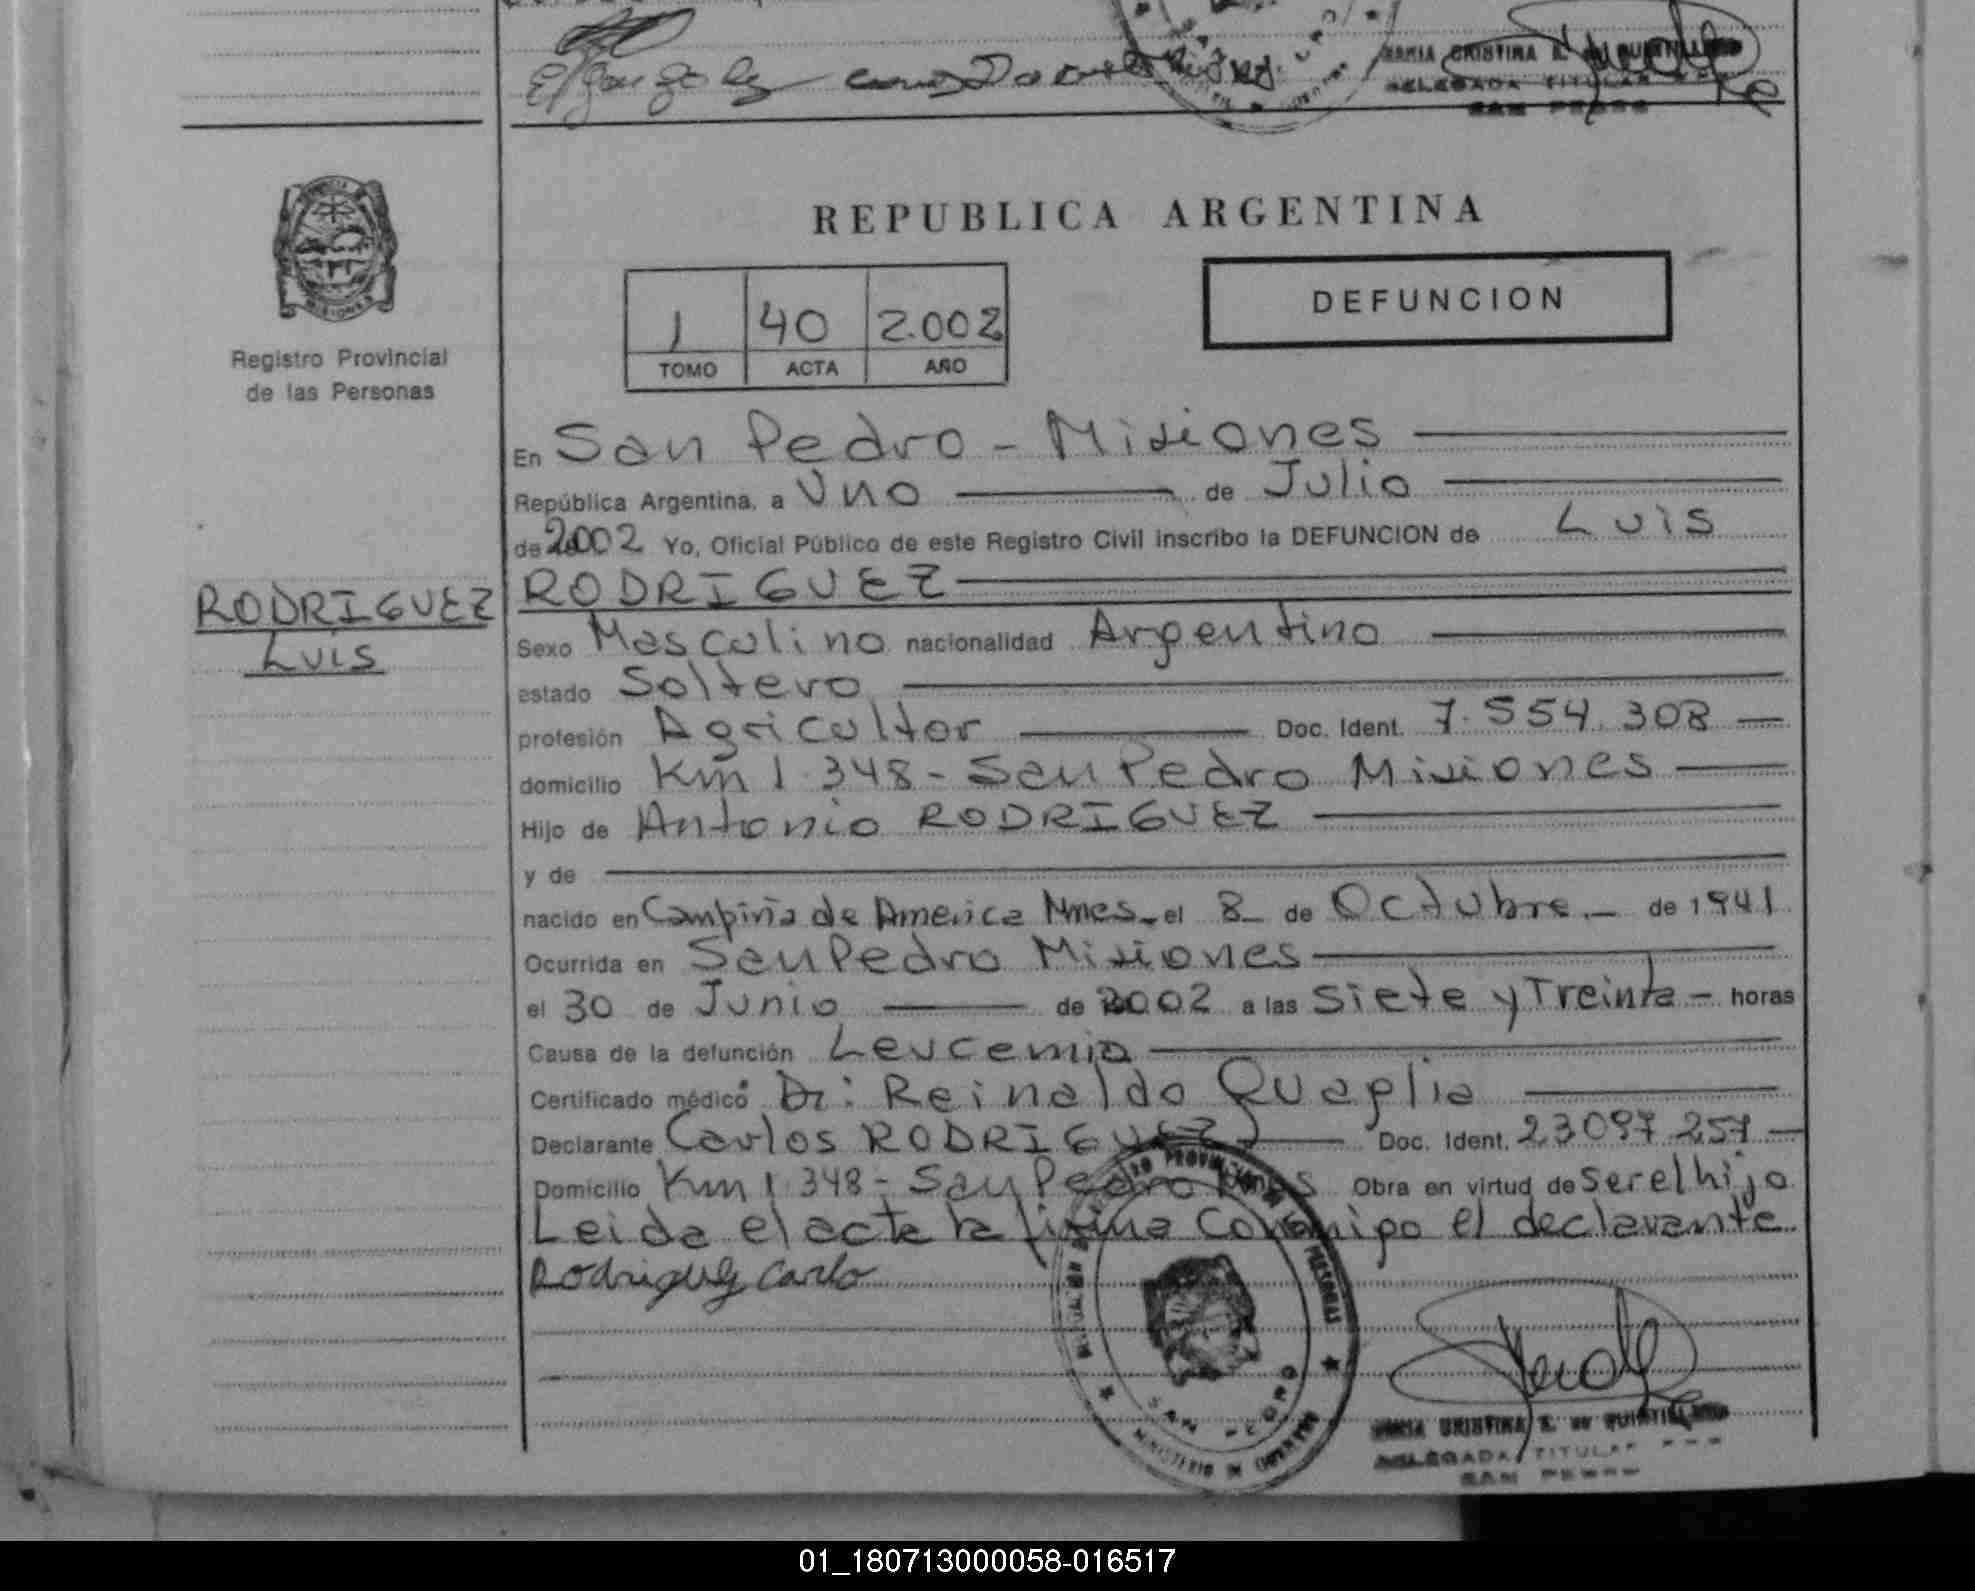 MARIA CRISTINA
DELEGADA TITULAR
SAN PEDRO
PROVINCIA DE
MISIONES
Registro Provincial
de las Personas
REPUBLICA ARGENTINA
1 40 2.002
TOMO ACTA AÑO
DEFUNCION
En San Pedro - Misiones
República Argentina, a Uno de Julio
de 2002 Yo, Oficial Público de este Registro Civil inscribo la DEFUNCION de Luis
RODRIGUEZ
RODRIGUEZ
Luis
Sexo Masculino nacionalidad Argentino
estado Soltero
profesión Agricultor Doc. Ident. 7.554.308
domicilio Km 1.348 - San Pedro Misiones
Hijo de Antonio RODRIGUEZ
y de
nacido en Campiña de America Mnes. el 8 de Octubre de 1941
Ocurrida en San Pedro Misiones
el 30 de Junio de 2002 a las Siete y Treinta - horas
Causa de la defunción Leucemia
Certificado médico Dr: Reinaldo Quaglia
Declarante Carlos RODRIGUEZ Doc. Ident. 23.097.257
Domicilio Km 1.348 - San Pedro Mnes Obra en virtud de Ser el hijo
Leida el acta la firma Conmigo el declarante
Rodriguez Carlo
SAN PEDRO
MINISTERIO DE GOBIERNO
MARIA CRISTINA
DELEGADA TITULAR
SAN PEDRO
01_180713000058-016517